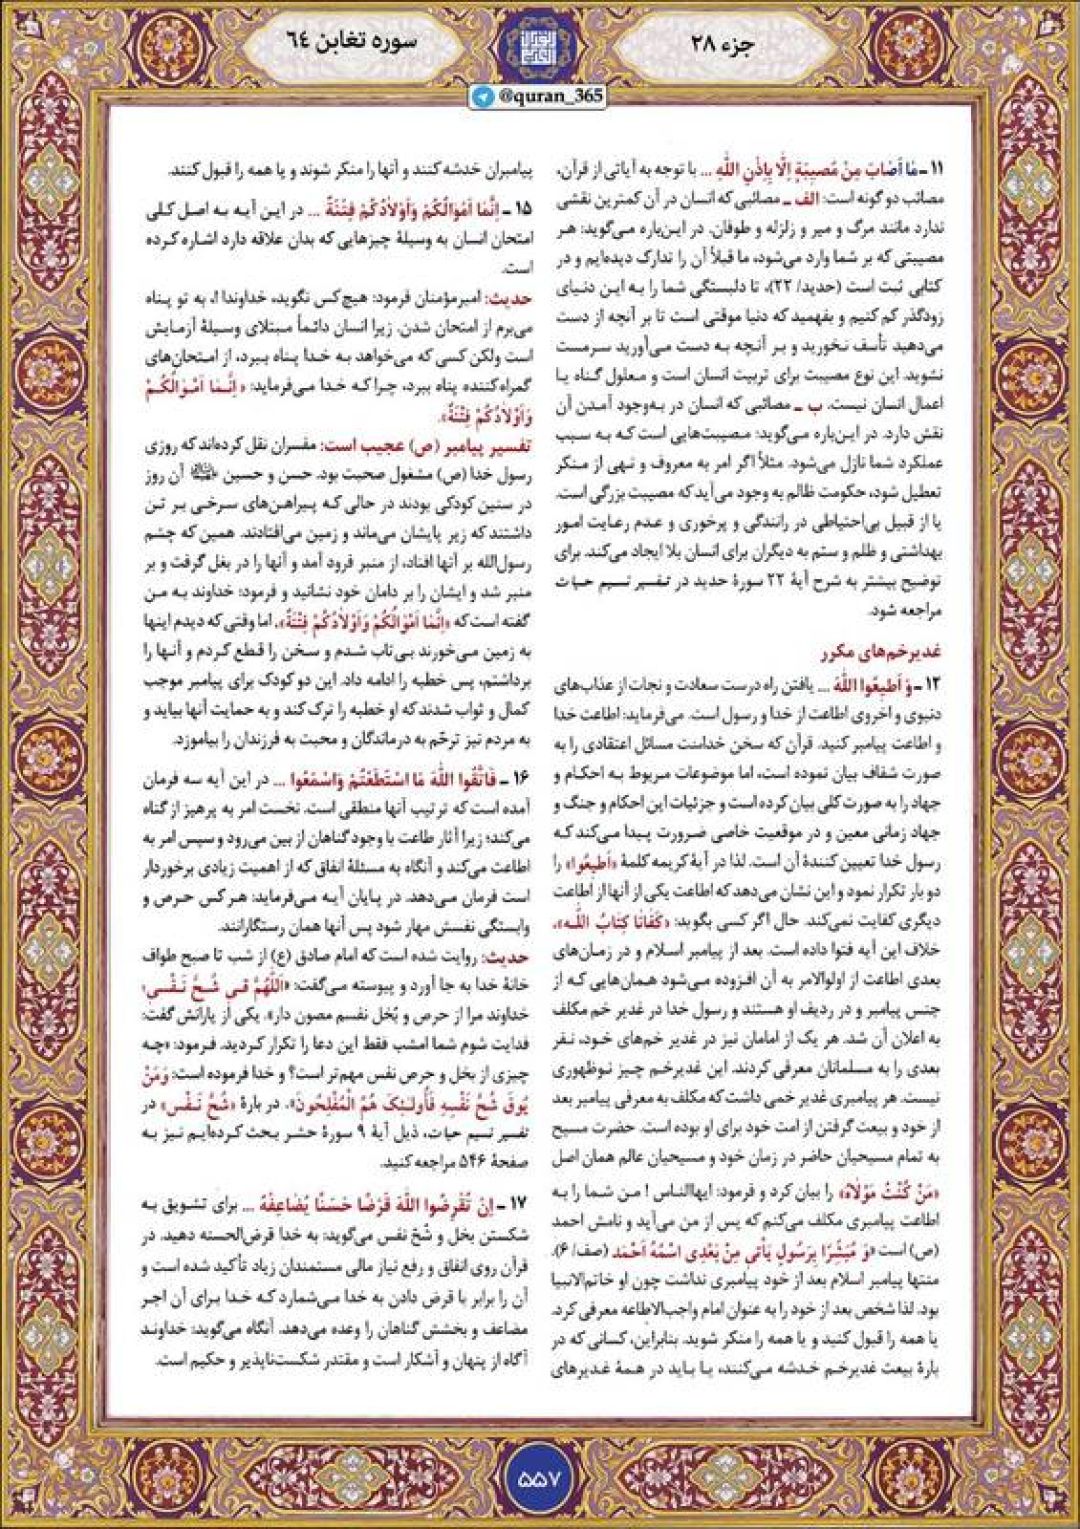 جزء ۲۸
سوره تغابن ٦٤
@quran_365
۱۱ ـ مٰا اَصٰابَ مِنْ مُصیبَةٍ اِلّٰا بِاِذْنِ اللّٰهِ ... با توجه به آیاتی از قرآن،
مصائب دو گونه است: الف ـ مصائبی که انسان در آن کمترین نقشی
ندارد مانند مرگ و میر و زلزله و طوفان. در این‌باره می‌گوید: هر
مصیبتی که بر شما وارد می‌شود، ما قبلاً آن را تدارک دیده‌ایم و در
کتابی ثبت است (حدید/ ۲۲)، تا دلبستگی شما را به این دنیای
زودگذر کم کنیم و بفهمید که دنیا موقتی است تا بر آنچه از دست
می‌دهید تأسف نخورید و بر آنچه به دست می‌آورید سرمست
نشوید. این نوع مصیبت برای تربیت انسان است و معلول گناه یا
اعمال انسان نیست. ب ـ مصائبی که انسان در به‌وجود آمدن آن
نقش دارد. در این‌باره می‌گوید: مصیبت‌هایی است که به سبب
عملکرد شما نازل می‌شود. مثلاً اگر امر به معروف و نهی از منکر
تعطیل شود، حکومت ظالم به وجود می‌آید که مصیبت بزرگی است.
یا از قبیل بی‌احتیاطی در رانندگی و پرخوری و عدم رعایت امور
بهداشتی و ظلم و ستم به دیگران برای انسان بلا ایجاد می‌کند. برای
توضیح بیشتر به شرح آیهٔ ۲۲ سورهٔ حدید در تفسیر نسیم حیات
مراجعه شود.
غدیرخم‌های مکرر
۱۲ ـ وَ اَطیعُوا اللّٰهَ ... یافتن راه درست سعادت و نجات از عذاب‌های
دنیوی و اخروی اطاعت از خدا و رسول است. می‌فرماید: اطاعت خدا
و اطاعت پیامبر کنید. قرآن که سخن خداست مسائل اعتقادی را به
صورت شفاف بیان نموده است، اما موضوعات مربوط به احکام و
جهاد را به صورت کلی بیان کرده است و جزئیات این احکام و جنگ و
جهاد زمانی معین و در موقعیت خاصی ضرورت پیدا می‌کند که
رسول خدا تعیین کنندهٔ آن است. لذا در آیهٔ کریمه کلمهٔ «اَطیعُوا» را
دو بار تکرار نمود و این نشان می‌دهد که اطاعت یکی از آنها از اطاعت
دیگری کفایت نمی‌کند. حال اگر کسی بگوید: «کَفٰانٰا کِتٰابُ اللّٰه»،
خلاف این آیه فتوا داده است. بعد از پیامبر اسلام و در زمان‌های
بعدی اطاعت از اولوالامر به آن افزوده می‌شود همان‌هایی که از
جنس پیامبر و در ردیف او هستند و رسول خدا در غدیر خم مکلف
به اعلان آن شد. هر یک از امامان نیز در غدیر خم‌های خود، نفر
بعدی را به مسلمانان معرفی کردند. این غدیرخم چیز نوظهوری
نیست. هر پیامبری غدیر خمی داشت که مکلف به معرفی پیامبر بعد
از خود و بیعت گرفتن از امت خود برای او بوده است. حضرت مسیح
به تمام مسیحیان حاضر در زمان خود و مسیحیان عالم همان اصل
«مَنْ کُنْتُ مَوْلٰاهُ» را بیان کرد و فرمود: ایهاالناس ! من شما را به
اطاعت پیامبری مکلف می‌کنم که پس از من می‌آید و نامش احمد
(ص) است «وَ مُبَشِّرًا بِرَسُولٍ یَأْتی مِنْ بَعْدِی اسْمُهُ اَحْمَد (صف/ ۶).
منتها پیامبر اسلام بعد از خود پیامبری نداشت چون او خاتم‌الانبیا
بود. لذا شخص بعد از خود را به عنوان امام واجب‌الاطاعه معرفی کرد.
یا همه را قبول کنید و یا همه را منکر شوید. بنابراین، کسانی که در
بارهٔ بیعت غدیرخم خدشه می‌کنند، یا باید در همهٔ غدیرهای
پیامبران خدشه کنند و آنها را منکر شوند و یا همه را قبول کنند.
۱۵ ـ اِنَّمٰا اَمْوٰالُکُمْ وَ اَوْلٰادُکُمْ فِتْنَةٌ ... در این آیه به اصل کلی
امتحان انسان به وسیلهٔ چیزهایی که بدان علاقه دارد اشاره کرده
است.
حدیث: امیرمؤمنان فرمود: هیچ کس نگوید، خداوندا !، به تو پناه
می‌برم از امتحان شدن. زیرا انسان دائماً مبتلای وسیلهٔ آزمایش
است ولکن کسی که می‌خواهد به خدا پناه ببرد، از امتحان‌های
گمراه‌کننده پناه ببرد، چرا که خدا می‌فرماید: « اِنَّمٰا اَمْوٰالُکُمْ
وَ اَوْلٰادُکُمْ فِتْنَةٌ».
تفسیر پیامبر (ص) عجیب است: مفسران نقل کرده‌اند که روزی
رسول خدا (ص) مشغول صحبت بود. حسن و حسین آن روز
در سنین کودکی بودند در حالی که پیراهن‌های سرخی بر تن
داشتند که زیر پایشان می‌ماند و زمین می‌افتادند. همین که چشم
رسول‌الله بر آنها افتاد، از منبر فرود آمد و آنها را در بغل گرفت و بر
منبر شد و ایشان را بر دامان خود نشانید و فرمود: خداوند به من
گفته است که «اِنَّمٰا اَمْوٰالُکُمْ وَ اَوْلٰادُکُمْ فِتْنَةٌ»، اما وقتی که دیدم اینها
به زمین می‌خورند بی‌تاب شدم و سخن را قطع کردم و آنها را
برداشتم، پس خطبه را ادامه داد. این دو کودک برای پیامبر موجب
کمال و ثواب شدند که او خطبه را ترک کند و به حمایت آنها بیاید و
به مردم نیز ترحّم به درماندگان و محبت به فرزندان را بیاموزد.
۱۶ ـ فَاتَّقُوا اللّٰهَ مَا اسْتَطَعْتُمْ وَاسْمَعُوا ... در این آیه سه فرمان
آمده است که ترتیب آنها منطقی است. نخست امر به پرهیز از گناه
می‌کند؛ زیرا آثار طاعت با وجود گناهان از بین می‌رود و سپس امر به
اطاعت می‌کند و آنگاه به مسئلهٔ انفاق که از اهمیت زیادی برخوردار
است فرمان می‌دهد. در پایان آیه می‌فرماید: هر کس حرص و
وابستگی نفسش مهار شود پس آنها همان رستگارانند.
حدیث: روایت شده است که امام صادق (ع) از شب تا صبح طواف
خانهٔ خدا به جا آورد و پیوسته می‌گفت: «اَللّٰهُمَّ قِنی شُحَّ نَفْسی»
خداوند مرا از حرص و بُخل نفسم مصون دار». یکی از یارانش گفت:
فدایت شوم شما امشب فقط این دعا را تکرار کردید. فرمود: «چه
چیزی از بخل و حرص نفس مهم‌تر است؟ و خدا فرموده است: وَمَنْ
یُوقَ شُحَّ نَفْسِهِ فَأُولٰئِکَ هُمُ الْمُفْلِحُونَ». در بارهٔ «شُحَّ نَفْس» در
تفسیر نسیم حیات، ذیل آیهٔ ۹ سورهٔ حشر بحث کرده‌ایم نیز به
صفحهٔ ۵۴۶ مراجعه کنید.
۱۷ ـ اِنْ تُقْرِضُوا اللّٰهَ قَرْضًا حَسَنًا یُضٰاعِفْهُ ... برای تشویق به
شکستن بخل و شُحّ نفس می‌گوید: به خدا قرض‌الحسنه دهید. در
قرآن روی انفاق و رفع نیاز مالی مستمندان زیاد تأکید شده است و
آن را برابر با قرض دادن به خدا می‌شمارد که خدا برای آن اجر
مضاعف و بخشش گناهان را وعده می‌دهد. آنگاه می‌گوید: خداوند
آگاه از پنهان و آشکار است و مقتدر شکست‌ناپذیر و حکیم است.
۵۵۷